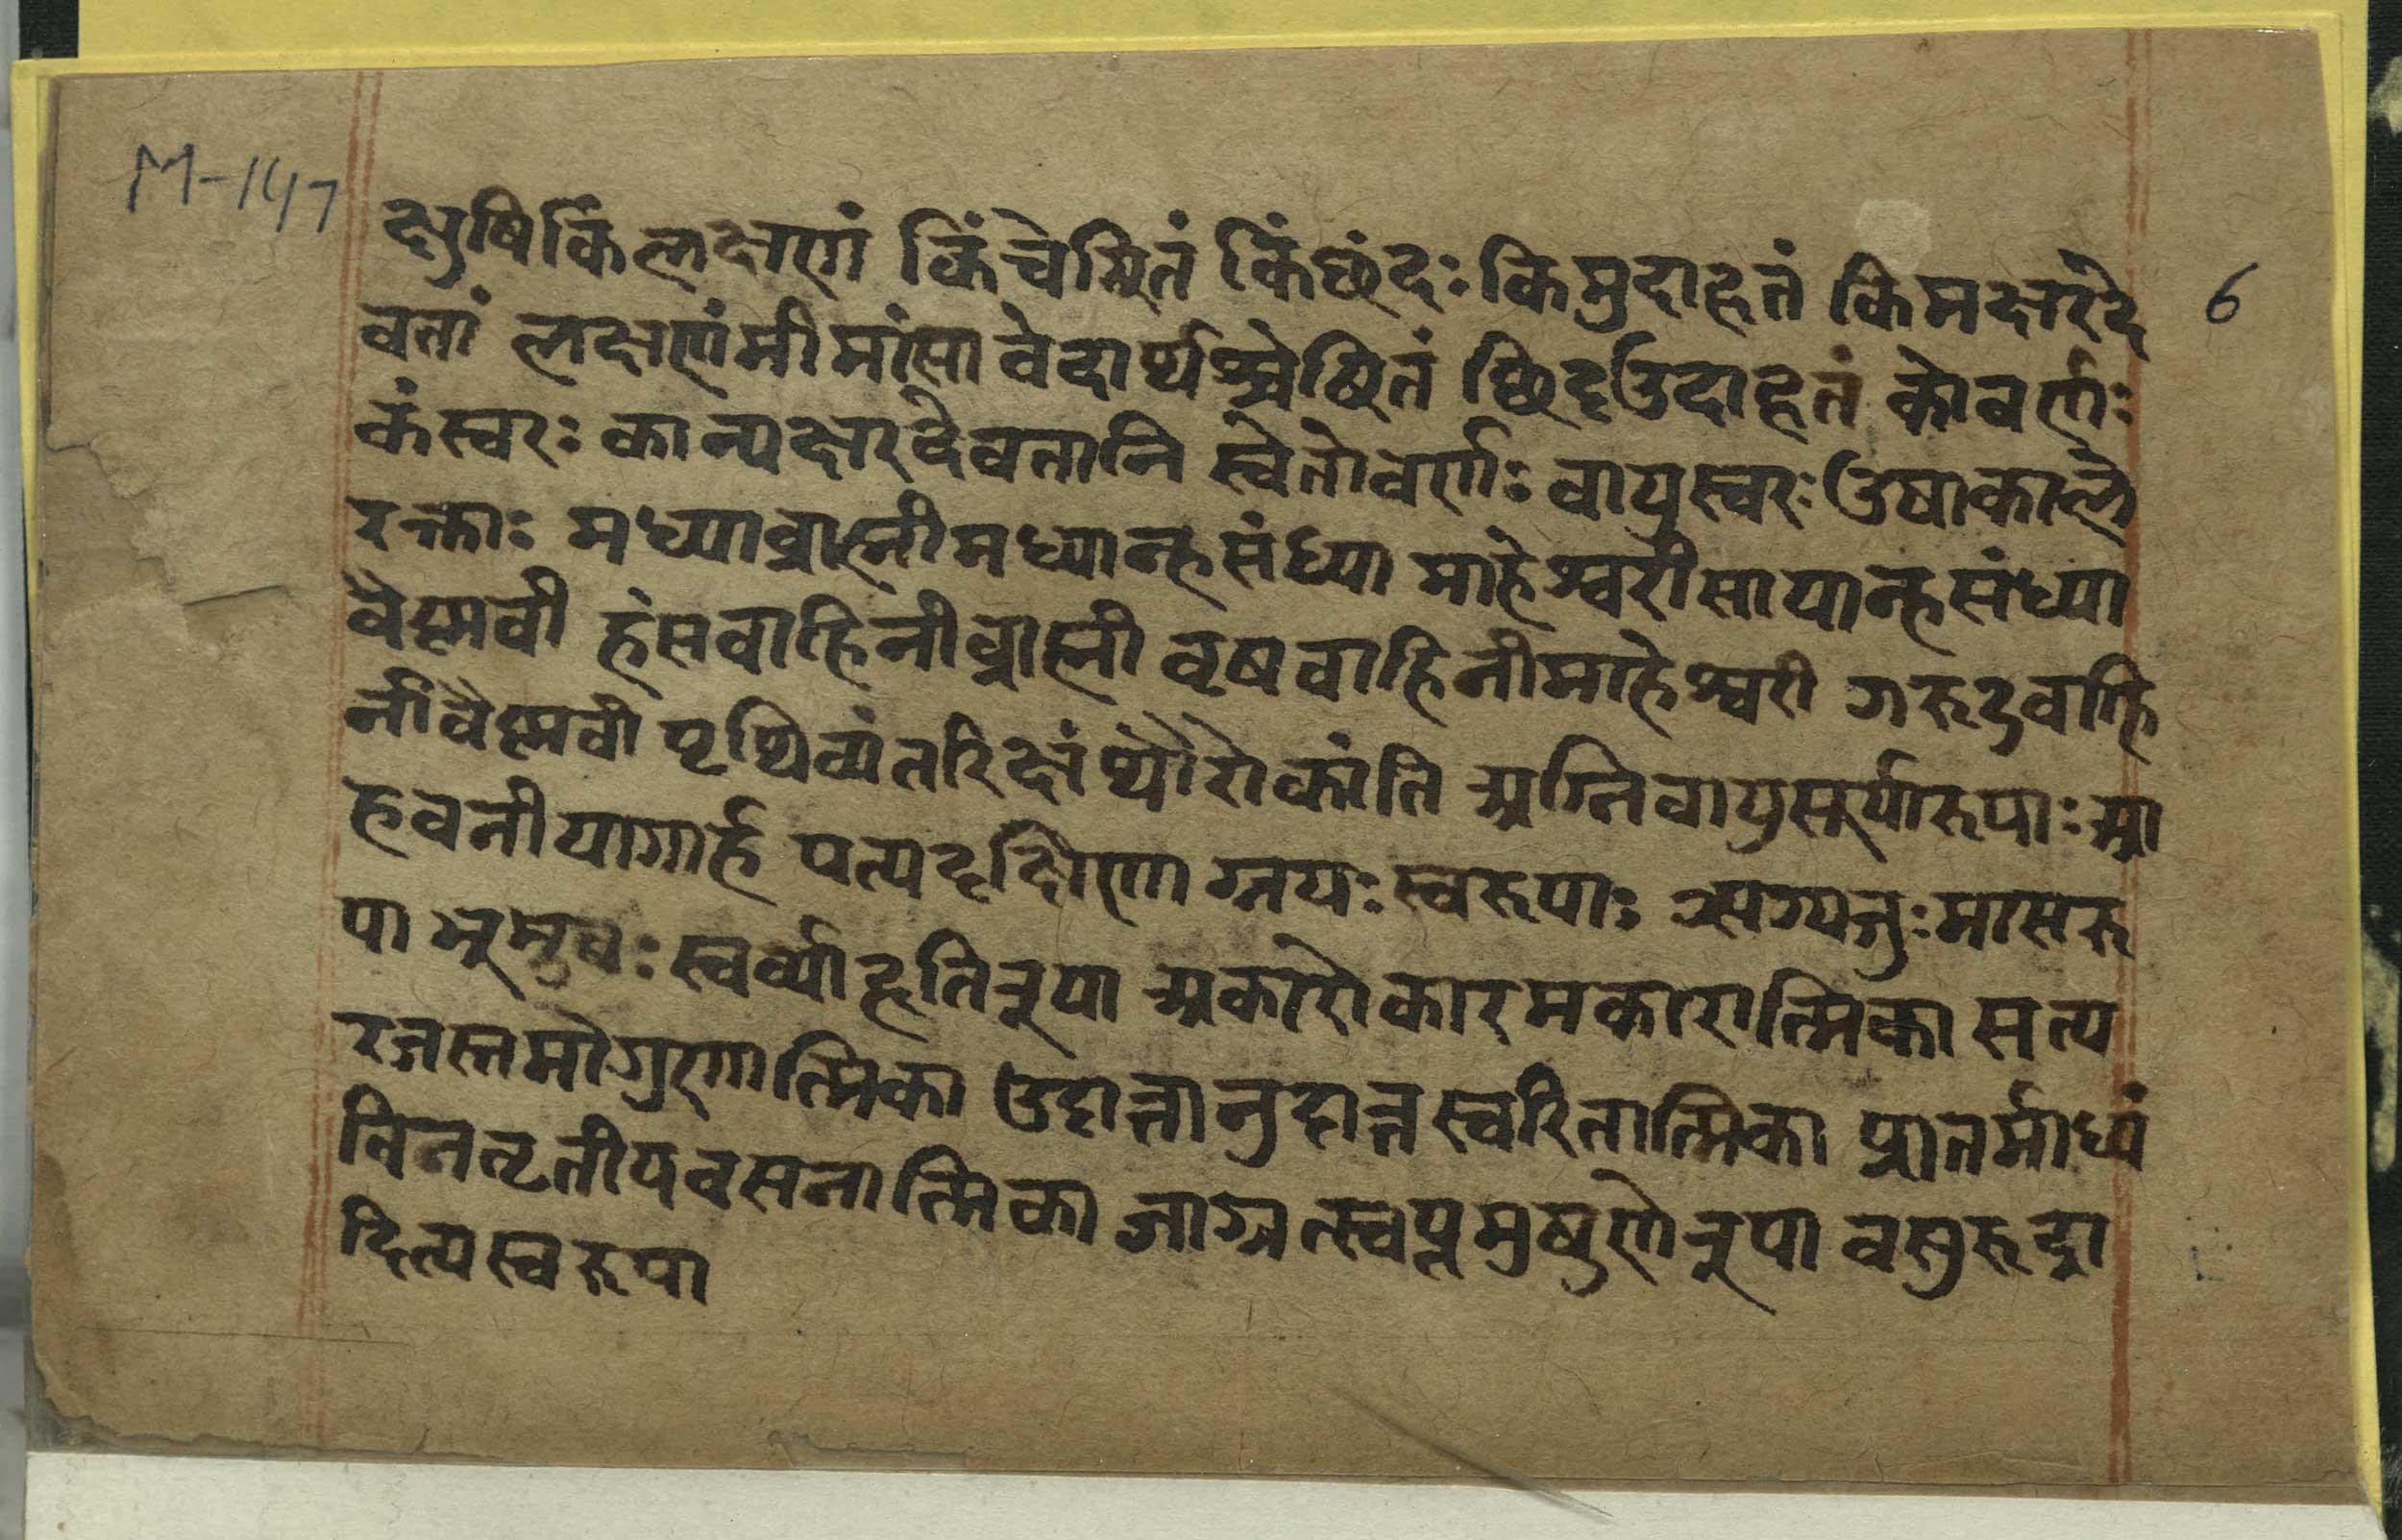 M-147
क्षुषिकिंलक्षणं किंचेष्टितं किंछंदः किमुदाहृतं किमक्षरदे
6
वतां लक्षणंमीमांसा वेदार्थश्चेष्ठितं छिदृउदाहृतं कोवर्णः
कंस्वरः कान्यक्षरदेवतानि स्वेतोवर्णः वायुस्वरः उषाकाले
रक्ताः मध्याब्राह्मीमध्यान्हसंध्या माहेश्वरीसायान्हसंध्या
वैष्णवी हंसवाहिनीब्राह्मी वृषवाहिनीमाहेश्वरी गरूडवाहि
नीवैष्णवी पृथिव्यंतरिक्षंद्यौरोकांति अग्निवायुसूर्यारूपाः आ
हवनीयागार्ह पत्यदृक्षिणा ग्नयः स्वरूपाः ऋग्यजुःमासरू
पा भूमुवः स्वर्व्याहृतिरूपा अकारोकारमकारात्मिका सत्य
रजस्तमोगुणात्मिका उदात्तानुदात्तस्वरितात्मिका प्रातर्माध्यं
दिनतृतीयवसनात्मिका जाग्रत्स्वप्नमुषुणेरूपा वसुरूद्रा
दित्यस्वरूपा